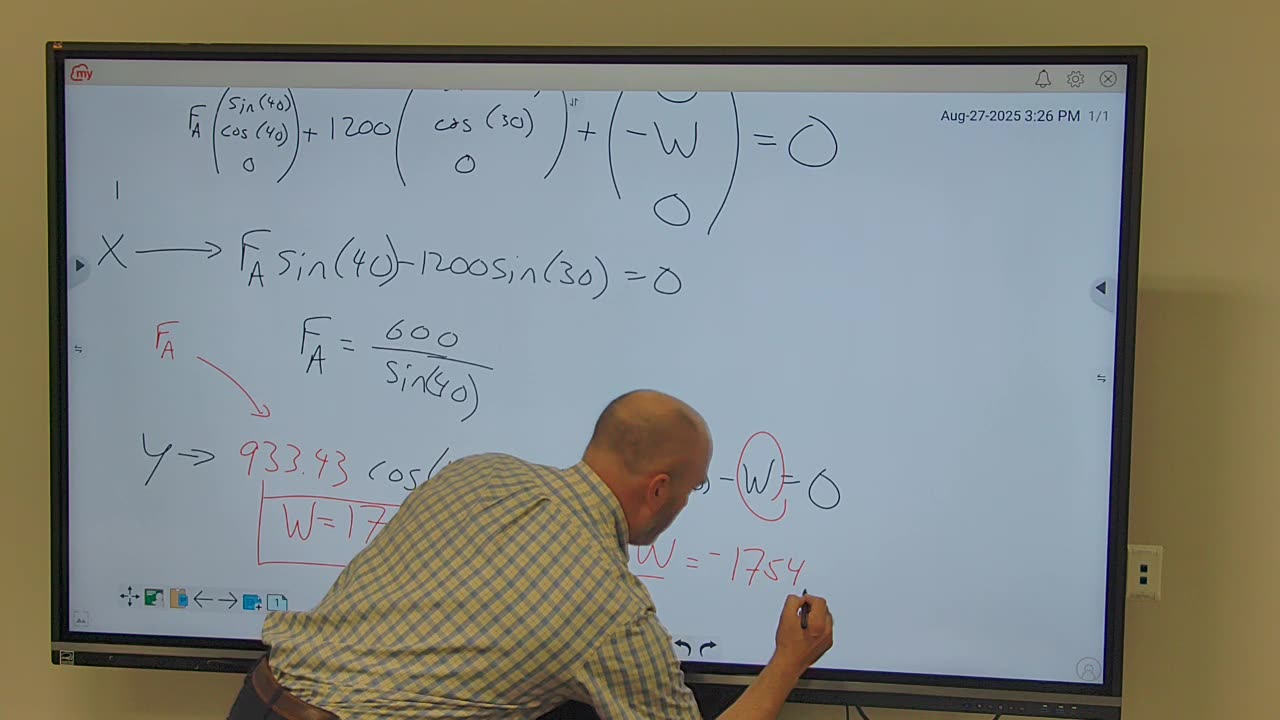 my
Aug-27-2025 3:26 PM 1/1
F_A (sin(40) cos(40) 0) + 1200 ( cos (30) 0) + ( -W 0) = 0
X → F_A sin(40) - 1200 sin(30) = 0
F_A
F_A = 600 / sin(40)
Y → 933.43 cos( - W = 0
W = 17
W = -1754
1